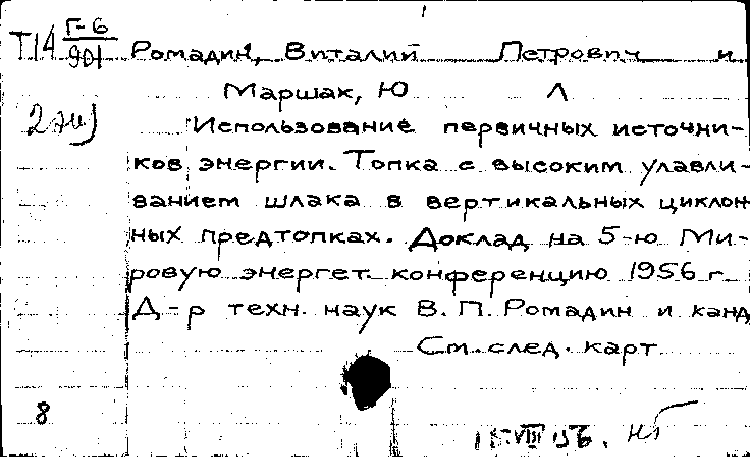 Т14 Г-6
901
Ромадин, Виталий Петрович и
Маршак, Ю Л
2 эк
Использование первичных источни-
ков энергии. Топка с высоким улавли-
ванием шлака в вертикальных циклон
ных предтопках. Доклад на 5-ю Ми-
ровую энергет. конференцию 1956 г.
Д-р техн. наук В. П. Ромадин и канд
См. след. карт
8
VIII 56.